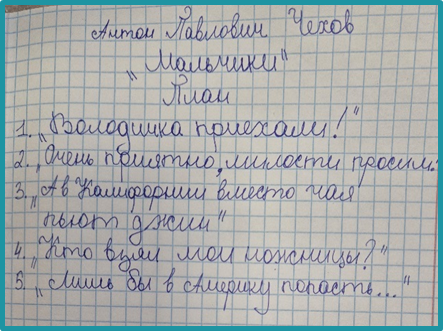 Антон Павлович Чехов
„Мальчики"
План
1. „Володичка приехали!"
2. „Очень приятно, милости просим.
3. „А в Калифорнии вместо чая
пьют джин"
4. „Кто взял мои ножницы?"
5. „Лишь бы в Америку попасть..."